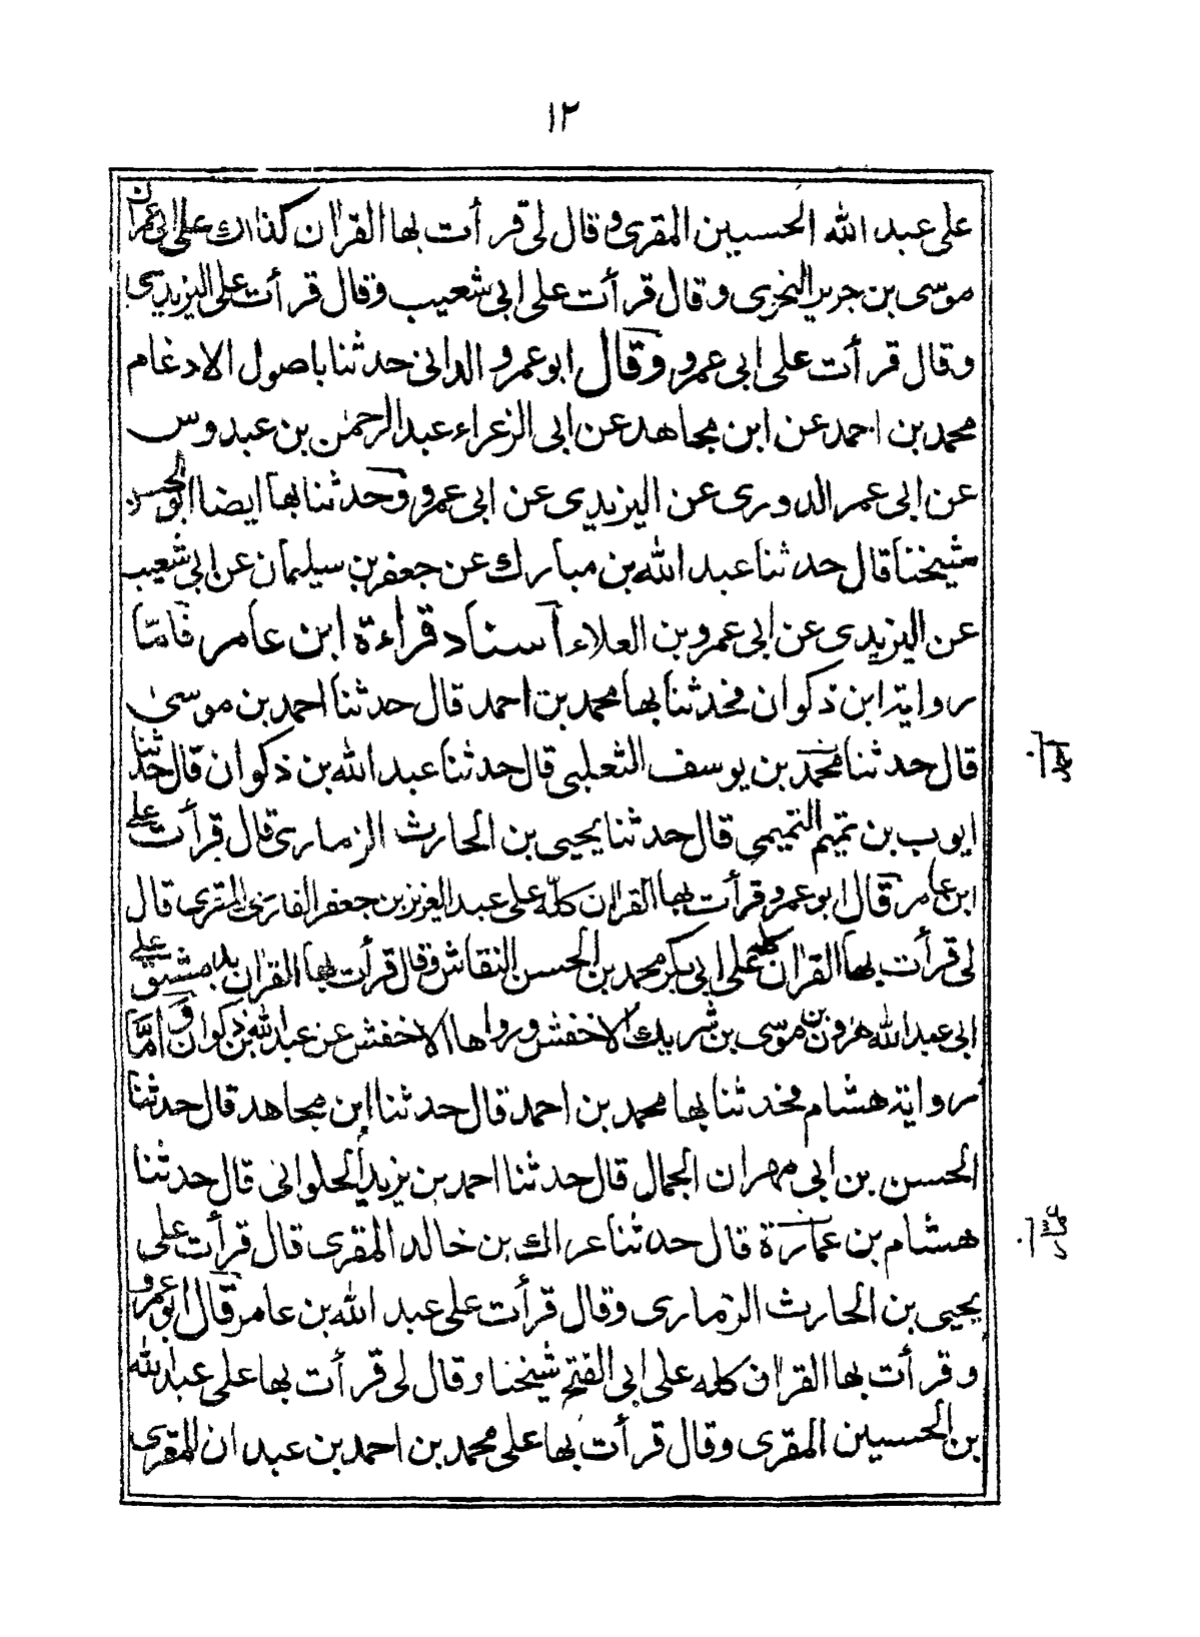 ١٢
على عبد الله الحسين المقرى وقال لى قرأت بها القران كذلك على ابى عمران
موسى بن جرير النخوى وقال قرأت على ابى شعيب وقال قرأت على اليزيدى
وقال قرأت على ابى عمرو وقال ابو عمرو الدانى حدثنا باصول الادغام
محمد بن احمد عن ابن مجاهد عن ابى الزعراء عبد الرحمن بن عبدوس
عن ابى عمر الدورى عن اليزيدى عن ابى عمرو وحدثنا بها ايضا ابو الحسن
شيخنا قال حدثنا عبد الله بن مبارك عن جعفر بن سليمان عن ابى شعيب
عن اليزيدى عن ابى عمرو بن العلاء اسناد قراءة ابن عامر فامّا
رواية ابن ذكوان فحدثنا بها محمد بن احمد قال حدثنا احمد بن موسى
قال حدثنا محمد بن يوسف الثعلبى قال حدثنا عبد الله بن ذكوان قال حدثنا
ايوب بن تميم التميمى قال حدثنا يحيى بن الحارث الزمارى قال قرأت على
ابن عامر قال ابو عمرو قرأت بها القران كلّه على عبد العزيز بن جعفر الفارسى المقرى قال
لى قرأت بها القران كله على ابى بكر محمد بن الحسن النقاش وقال قرأت بها القران بدمشق على
ابى عبد الله هرون بن موسى بن شريك الاخفش ورواها الاخفش عن عبد الله بن ذكوان وَامَّا
رواية هشام فحدثنا بها محمد بن احمد قال حدثنا ابن مجاهد قال حدثنا
الحسن بن ابى مهران الجمال قال حدثنا احمد بن يزيد الحلوانى قال حدثنا
هشام بن عمارة قال حدثنا عراك بن خالد المقرى قال قرأت على
يحيى بن الحارث الزمارى وقال قرأت على عبد الله بن عامر قال ابو عمرو
وقرأت بها القران كله على ابى الفتح شيخنا وقال لى قرأت بها على عبد الله
بن الحسين المقرى وقال قرأت بها على محمد بن احمد بن عبدان المقرى